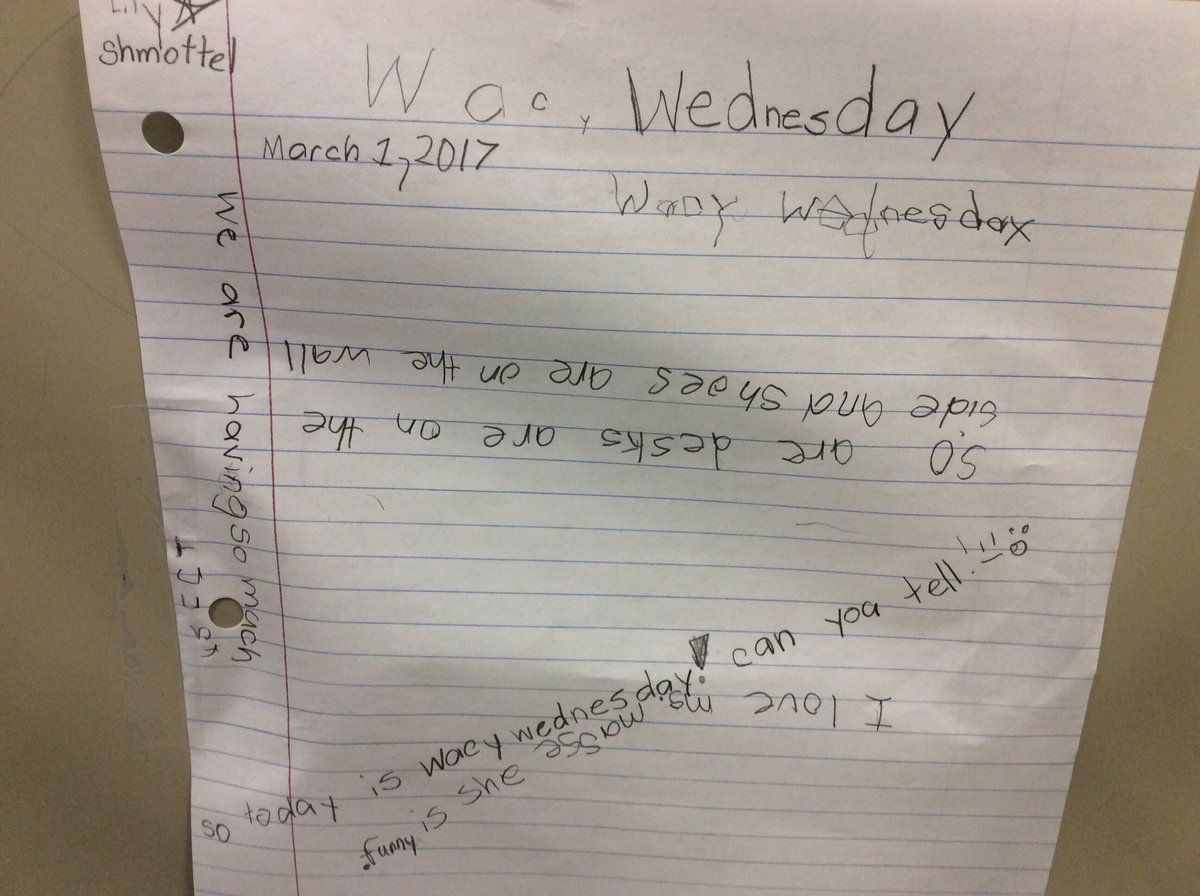 Lily
Shmottel
Wacy Wednesday
March 1, 2017
Wacy Wednesday
We are having so mach
So are desks are on the
side and shoes are on the wall
so today is wacy wednesday! can you tell.!!!
I love ms. masse she is funny.